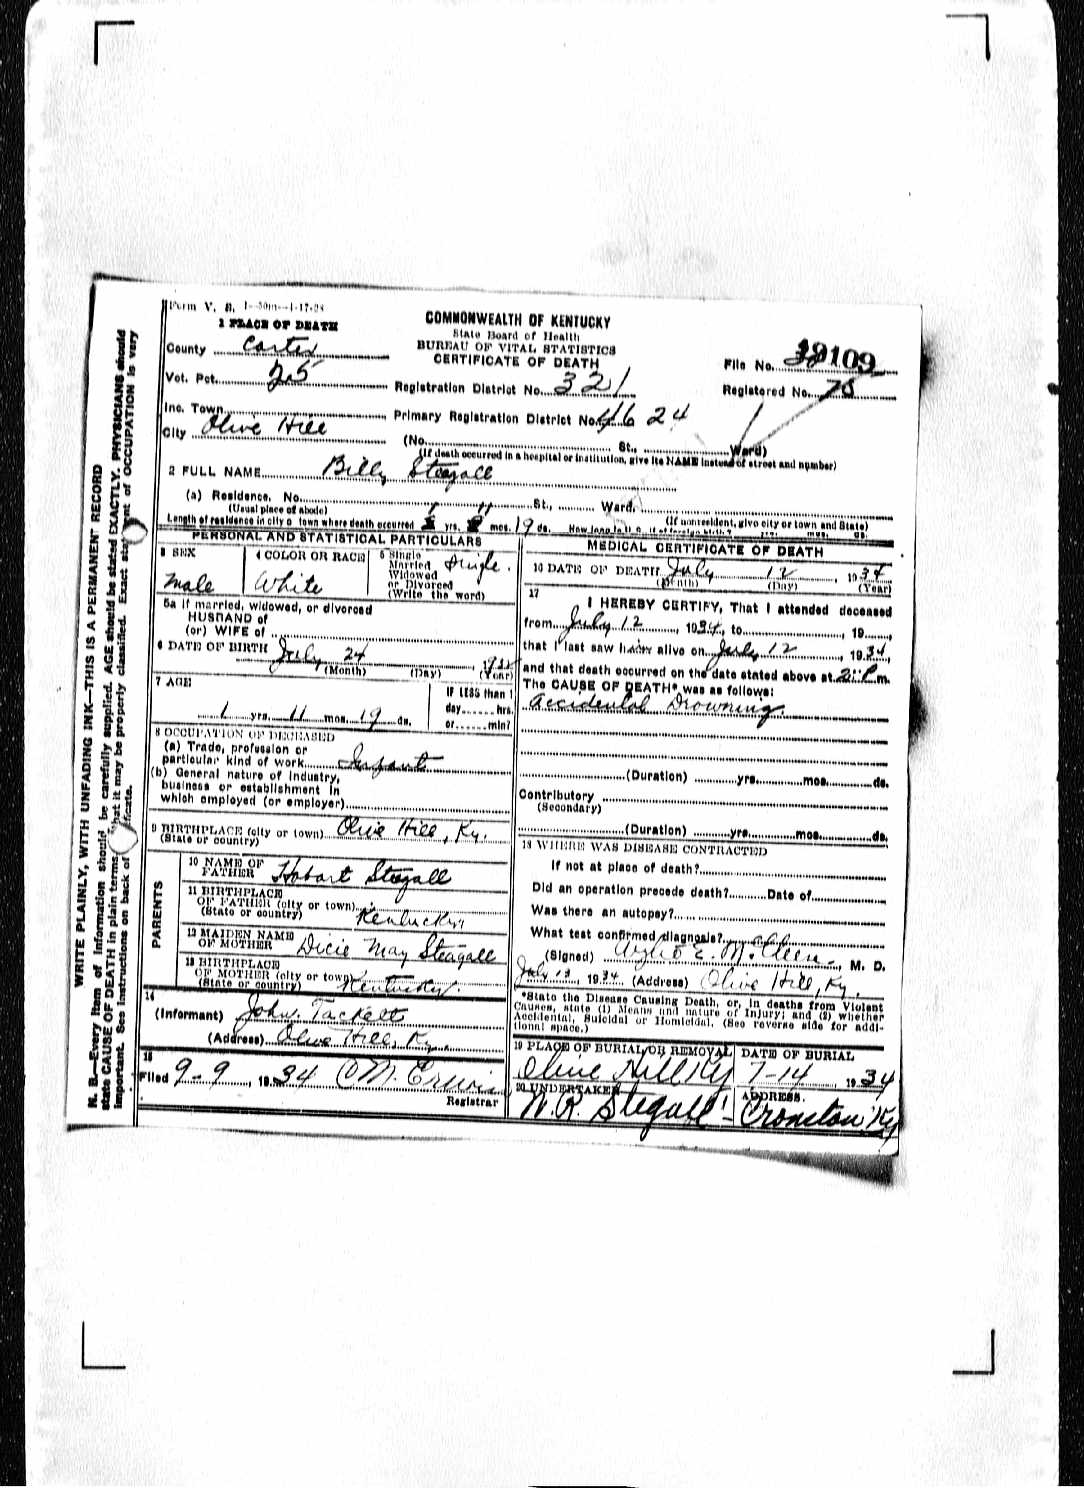 Form V. S. 1-50m-4-17-28
1 PLACE OF DEATH
COMMONWEALTH OF KENTUCKY
State Board of Health
BUREAU OF VITAL STATISTICS
CERTIFICATE OF DEATH
County Carter
File No. 19109
Vot. Pct. 25
Registration District No. 321
Registered No. 75
Inc. Town
Primary Registration District No. 4624
City Olive Hill
(No. St., Ward)
(If death occurred in a hospital or institution, give its NAME instead of street and number)
2 FULL NAME Billy Steagall
(a) Residence. No. St., Ward.
(Usual place of abode) (If nonresident, give city or town and State)
Length of residence in city or town where death occurred 1 yrs. 11 mos. 19 ds. How long in U. S., if of foreign birth? yrs. mos. ds.
PERSONAL AND STATISTICAL PARTICULARS
3 SEX
male
4 COLOR OR RACE
White
5 Single
Married
Widowed
or Divorced
(Write the word)
Single.
5a If married, widowed, or divorced
HUSBAND of
(or) WIFE of
6 DATE OF BIRTH July 24, 1932
(Month) (Day) (Year)
7 AGE
1 yrs. 11 mos. 19 ds.
IF LESS than 1
day hrs.
or min?
8 OCCUPATION OF DECEASED
(a) Trade, profession or
particular kind of work Infant
(b) General nature of industry,
business or establishment in
which employed (or employer)
9 BIRTHPLACE (city or town) Olive Hill, Ky.
(State or country)
PARENTS
10 NAME OF
FATHER Hobart Stegall
11 BIRTHPLACE
OF FATHER (city or town)
(State or country) Kentucky
12 MAIDEN NAME
OF MOTHER Dicie May Steagall
13 BIRTHPLACE
OF MOTHER (city or town)
(State or country) Kentucky.
14
(Informant) John. Tackett
(Address) Olive Hill, Ky.
15
Filed 9-9, 1934 Registrar
MEDICAL CERTIFICATE OF DEATH
16 DATE OF DEATH July 12, 1934
(Month) (Day) (Year)
17
I HEREBY CERTIFY, That I attended deceased
from July 12, 1934, to 19
that I last saw alive on July 12, 1934,
and that death occurred on the date stated above at 2 P. m.
The CAUSE OF DEATH* was as follows:
Accidental Drowning.
(Duration) yrs. mos. ds.
Contributory
(Secondary)
(Duration) yrs. mos. ds.
18 WHERE WAS DISEASE CONTRACTED
If not at place of death?
Did an operation precede death? Date of
Was there an autopsy?
What test confirmed diagnosis?
(Signed) E. M. , M. D.
July 13, 1934 (Address) Olive Hill, Ky.
*State the Disease Causing Death, or, in deaths from Violent
Causes, state (1) Means and nature of Injury; and (2) whether
Accidental, Suicidal or Homicidal. (See reverse side for addi-
tional space.)
19 PLACE OF BURIAL OR REMOVAL
Olive Hill Ky
DATE OF BURIAL
7-14 1934
20 UNDERTAKER
W. R. Stegall
ADDRESS.
Cronston Ky
WRITE PLAINLY, WITH UNFADING INK—THIS IS A PERMANENT RECORD
N. B.—Every item of information should be carefully supplied. AGE should be stated EXACTLY. PHYSICIANS should
state CAUSE OF DEATH in plain terms, that it may be properly classified. Exact statement of OCCUPATION is very
important. See instructions on back of certificate.